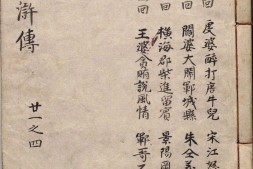 回 虔婆醉打唐牛兒 宋江怒
回 閻婆大鬧鄆城縣 朱仝義
回 橫海郡柴進留賓 景陽岡
回 王婆貪賄說風情 鄆哥不
滸傳 廿一之四